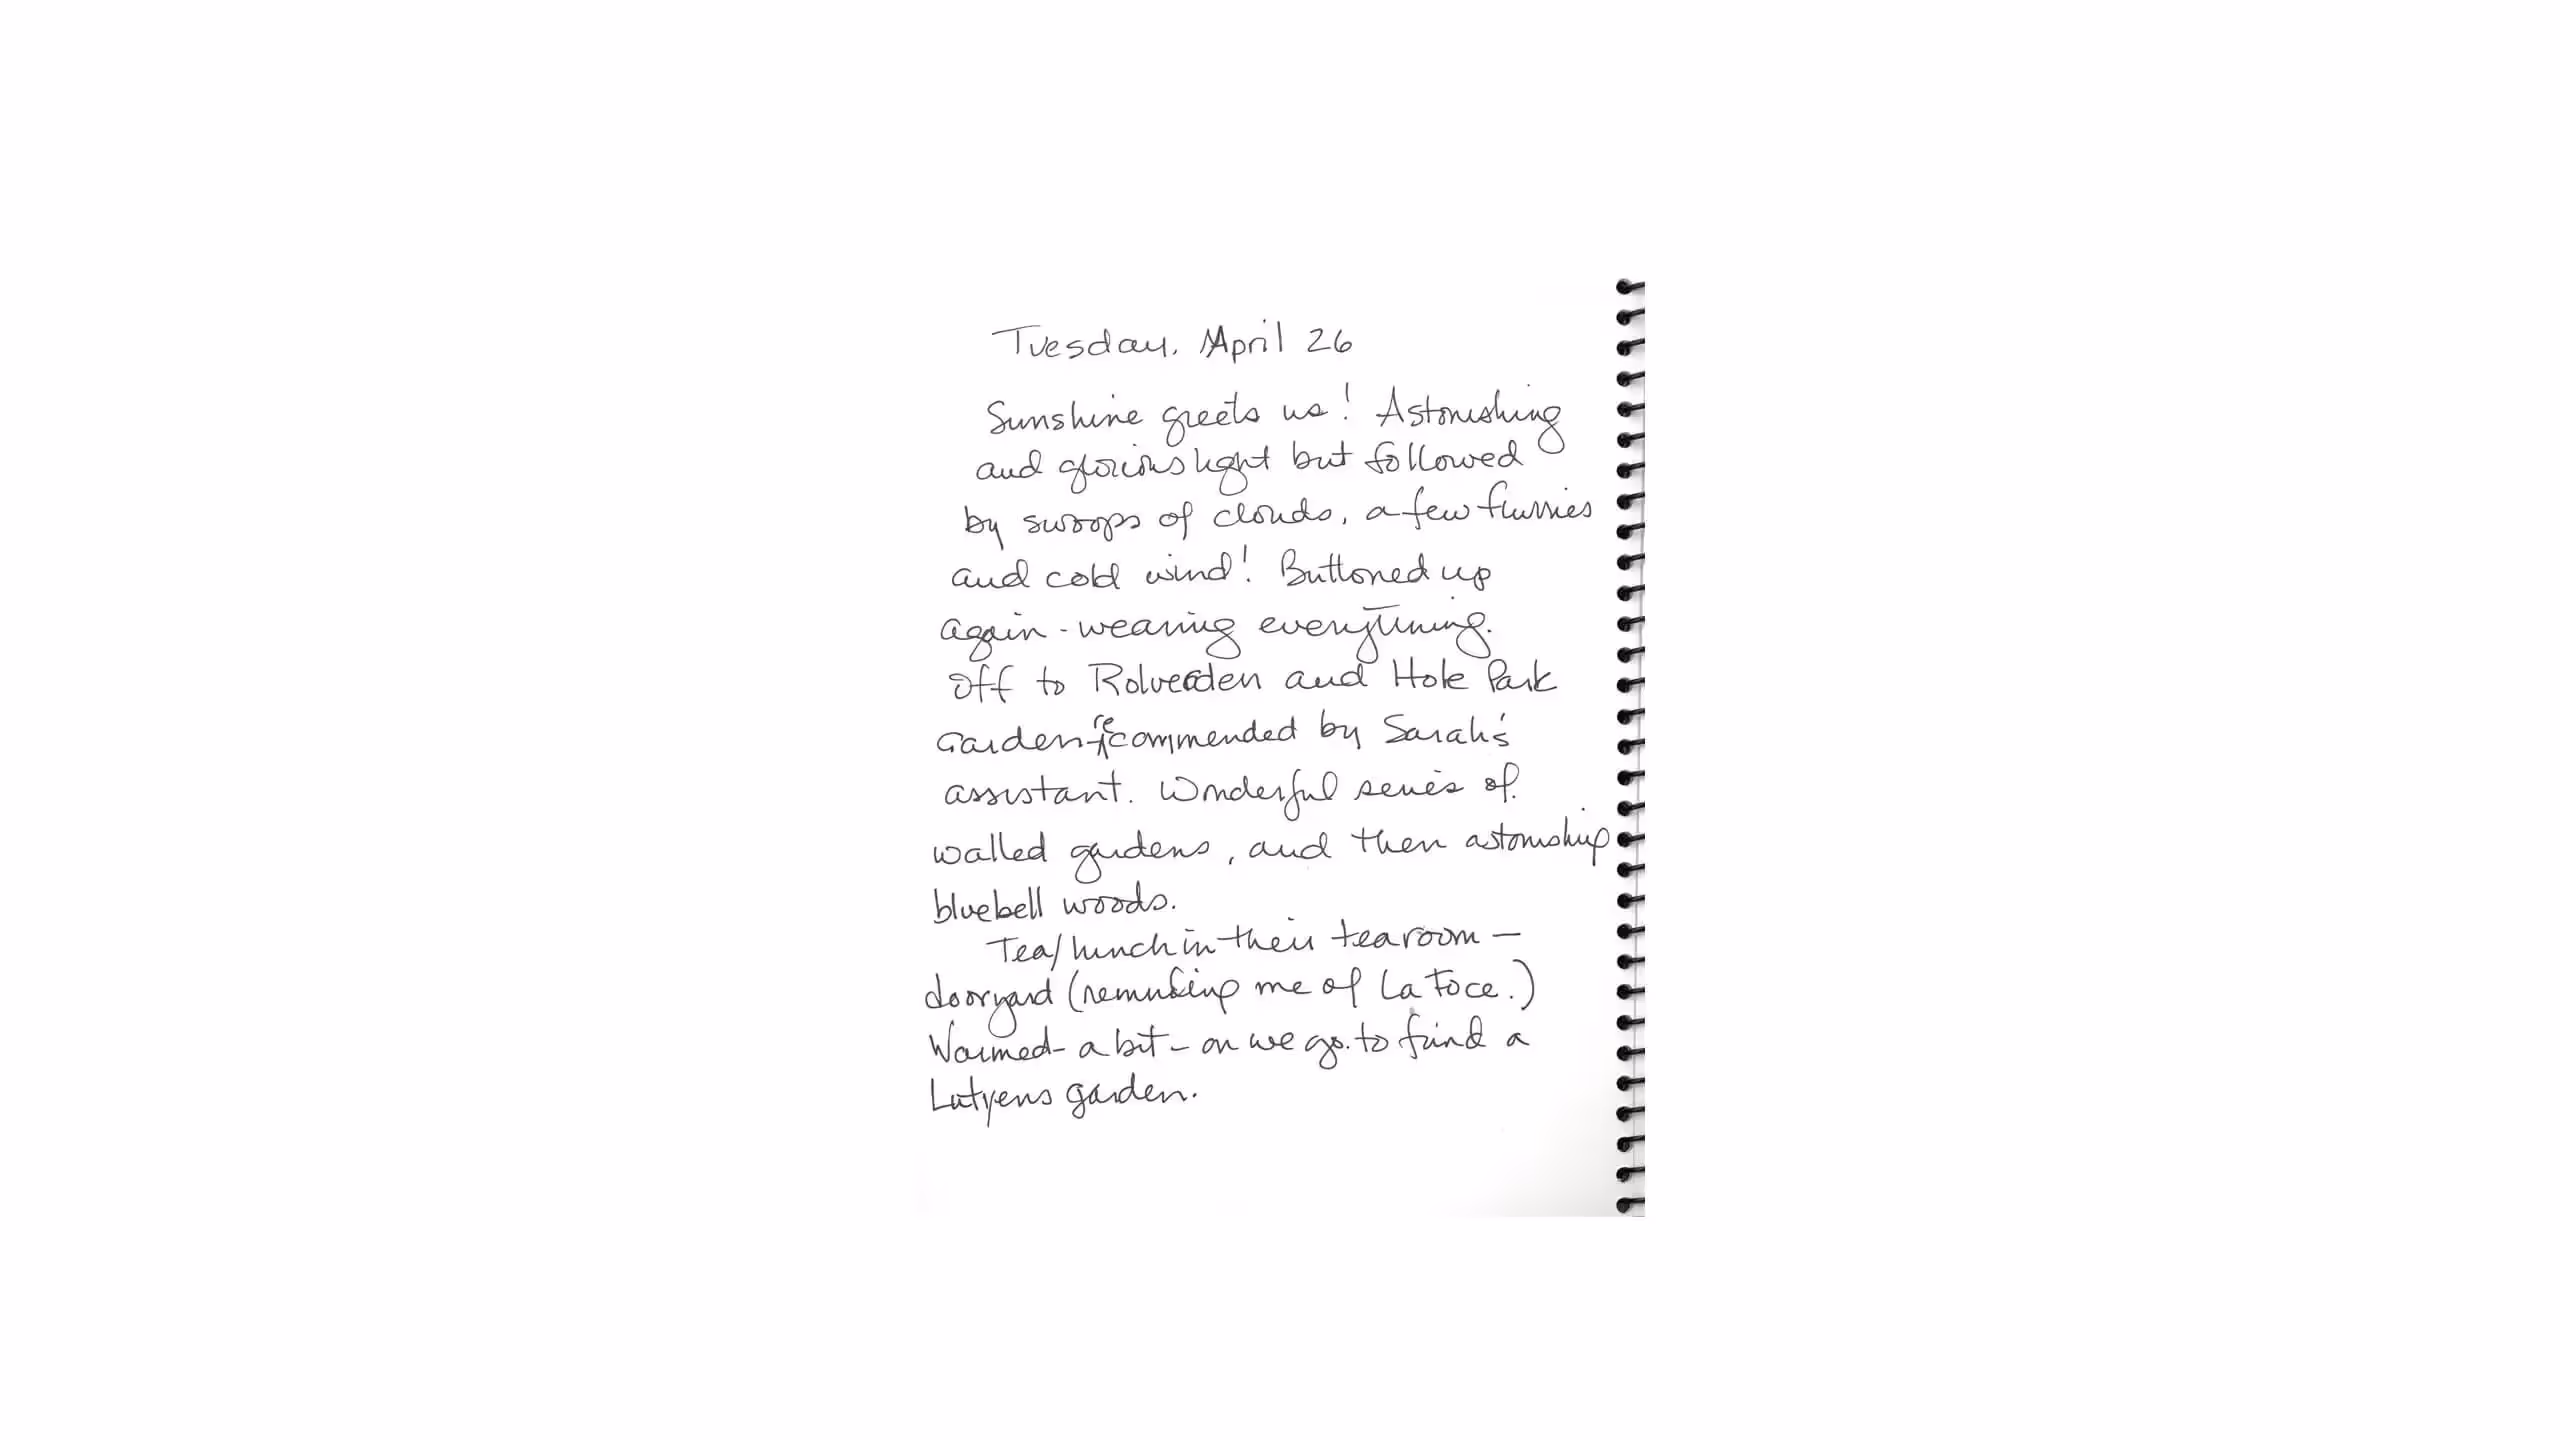 Tuesday, April 26
Sunshine greets us! Astonishing
and glorious light but followed
by swoops of clouds, a few flurries
and cold wind! Buttoned up
again - wearing everything.
Off to Rolvenden and Hole Park
Garden - recommended by Sarah's
assistant. Wonderful series of
walled gardens, and then astonishing
bluebell woods.
Tea/lunch in their tearoom -
dooryard (reminding me of La Foce.)
Warmed - a bit - on we go. to find a
Lutyens garden.